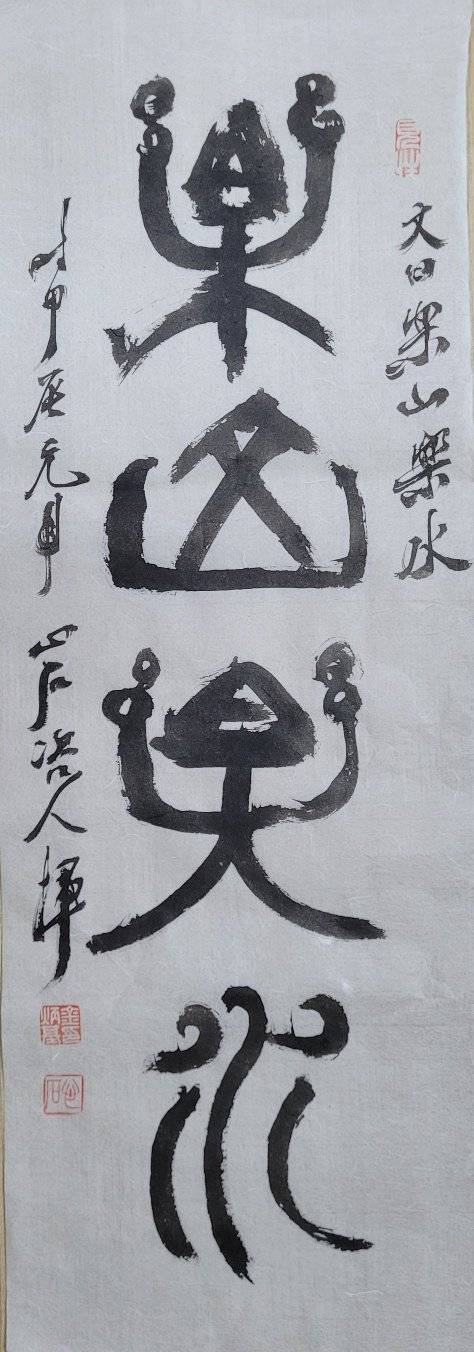 文曰樂山樂水
樂山樂水
时甲辰元月
人揮